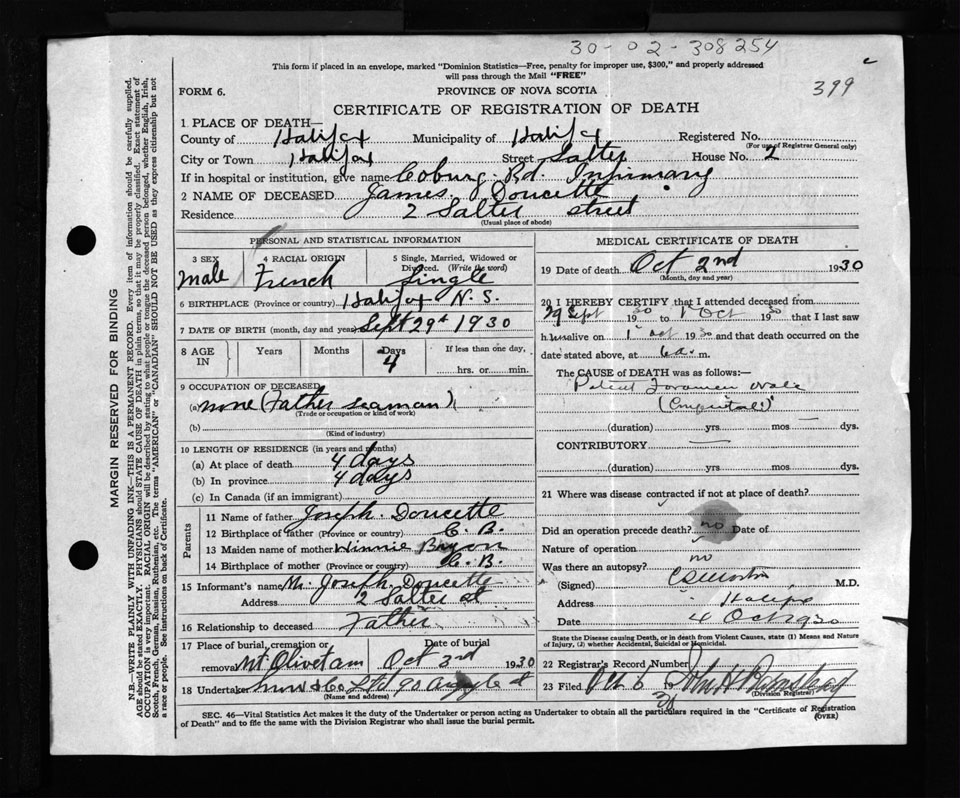 30-02-308254
This form if placed in an envelope, marked "Dominion Statistics—Free, penalty for improper use, $300," and properly addressed
will pass through the Mail "FREE"
399
FORM 6.
PROVINCE OF NOVA SCOTIA
CERTIFICATE OF REGISTRATION OF DEATH
1. PLACE OF DEATH—
County of Halifax Municipality of Halifax Registered No.
(For use of Registrar General only)
City or Town Halifax Street Salter House No. 2
If in hospital or institution, give name Coburg Rd. Infirmary
2 NAME OF DECEASED James Doucette
Residence 2 Salter street
(Usual place of abode)
PERSONAL AND STATISTICAL INFORMATION
3 SEX male
4 RACIAL ORIGIN French
5 Single, Married, Widowed or Divorced. (Write the word) Single
6 BIRTHPLACE (Province or country) Halifax N.S.
7 DATE OF BIRTH (month, day and year) Sept 29th 1930
8 AGE IN Years Months Days 4 If less than one day, hrs. or min.
9 OCCUPATION OF DECEASED
(a) none (Father seaman)
(Trade or occupation or kind of work)
(b)
(Kind of industry)
10 LENGTH OF RESIDENCE (in years and months)
(a) At place of death 4 days
(b) In province 4 days
(c) In Canada (if an immigrant)
Parents
11 Name of father Joseph Doucette
12 Birthplace of father (Province or country) C. B.
13 Maiden name of mother Winnie
14 Birthplace of mother (Province or country) C. B.
15 Informant's name Mr. Joseph Doucette
Address 2 Salter st
16 Relationship to deceased Father
17 Place of burial, cremation or removal Mt Olivet am Date of burial Oct 3rd 1930
18 Undertaker Snow & Co Ltd 90 Argyle st
(Name and address)
MEDICAL CERTIFICATE OF DEATH
19 Date of death Oct 2nd 1930
(Month, day and year)
20 I HEREBY CERTIFY that I attended deceased from
29 Sept 1930 to 1 Oct 1930 that I last saw
h im alive on 1 Oct 1930 and that death occurred on the
date stated above, at 6 a. m.
The CAUSE OF DEATH was as follows:—
Patent Foramen Ovale
(Congenital)
(duration) yrs. mos dys.
CONTRIBUTORY
(duration) yrs. mos. dys.
21 Where was disease contracted if not at place of death?
Did an operation precede death? no Date of
Nature of operation
Was there an autopsy? no
(Signed) M.D.
Address Halifax
Date 4 Oct 1930
State the Disease causing Death, or in death from Violent Causes, state (1) Means and Nature
of Injury, (2) whether Accidental, Suicidal or Homicidal.
22 Registrar's Record Number
23 Filed Oct 6 30 John H
(Division Registrar)
SEC. 46—Vital Statistics Act makes it the duty of the Undertaker or person acting as Undertaker to obtain all the particulars required in the "Certificate of Registration
of Death" and to file the same with the Division Registrar who shall issue the burial permit.
(OVER)
MARGIN RESERVED FOR BINDING
N.B.—WRITE PLAINLY WITH UNFADING INK—THIS IS A PERMANENT RECORD. Every item of information should be carefully supplied.
AGE should be stated EXACTLY. PHYSICIANS should STATE CAUSE OF DEATH in plain terms, so that it may be properly classified. Exact statement of
OCCUPATION is very important. RACIAL ORIGIN will be described by stating to what people or tongue the deceased person belonged, whether English, Irish,
Scotch, French, German, Russian, Ruthenian, etc. The terms "AMERICAN" or "CANADIAN" SHOULD NOT BE USED as they express citizenship but not
a race or people. See instructions on back of Certificate.